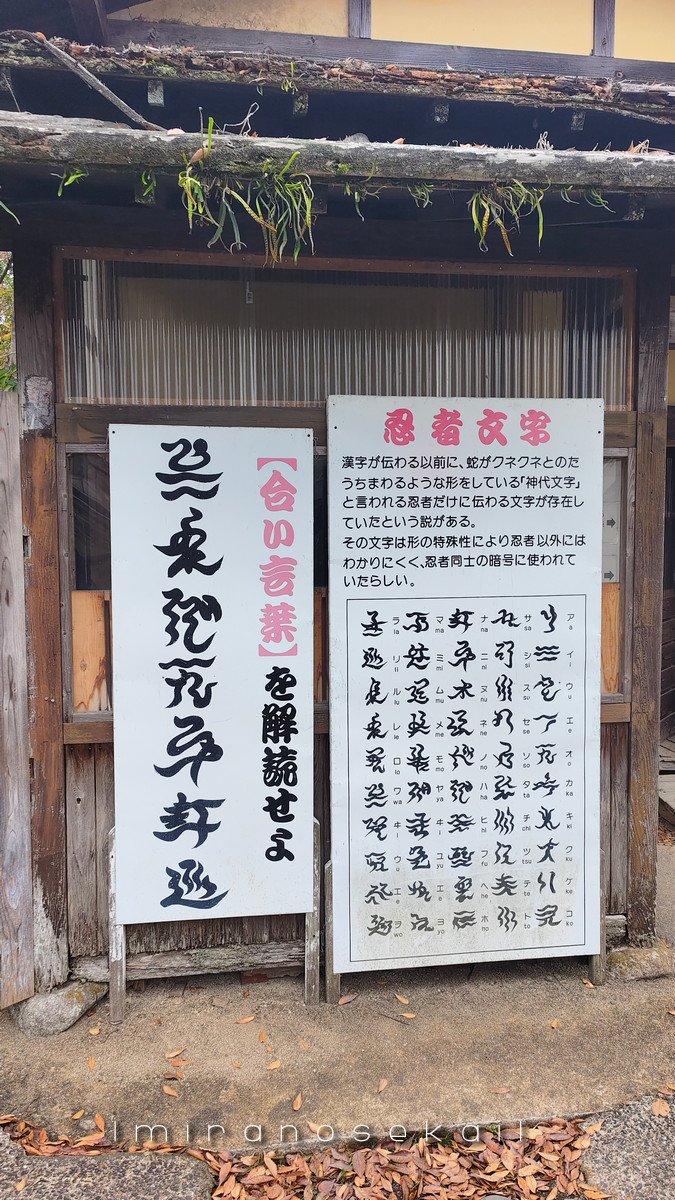 【合い言葉】を解読せよ
忍者文字
漢字が伝わる以前に、蛇がクネクネとのた
うちまわるような形をしている「神代文字」
と言われる忍者だけに伝わる文字が存在し
ていたという説がある。
その文字は形の特殊性により忍者以外には
わかりにくく、忍者同士の暗号に使われて
いたらしい。
ア a
イ i
ウ u
エ e
オ o
カ ka
キ ki
ク ku
ケ ke
コ ko
サ sa
シ si
ス su
セ se
ソ so
タ ta
チ chi
ツ tsu
テ te
ト to
ナ na
ニ ni
ヌ nu
ネ ne
ノ no
ハ ha
ヒ hi
フ fu
ヘ he
ホ ho
マ ma
ミ mi
ム mu
メ me
モ mo
ヤ ya
ヰ i
ユ yu
エ e
ヨ yo
ラ la
リ li
ル lu
レ le
ロ lo
ワ wa
ヰ i
ウ u
エ e
ヲ wo
imiranosekaii